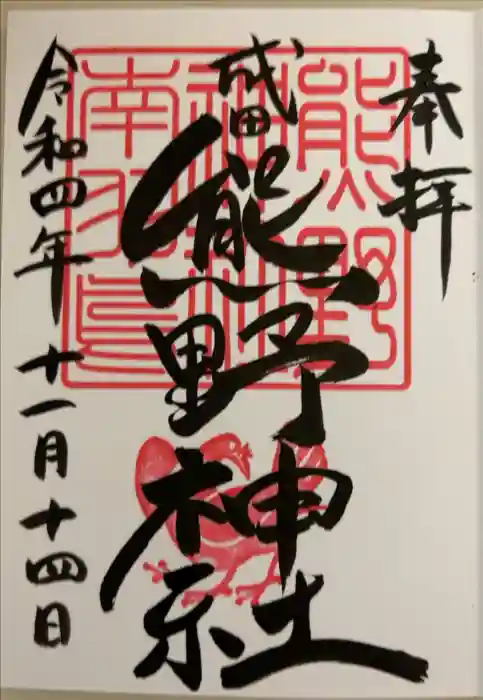 奉拝
成田
熊野神社
令和四年十一月十四日
熊野
神社